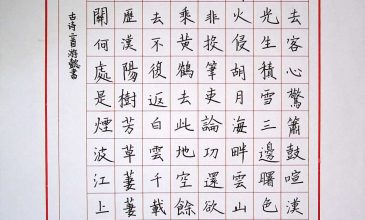 去客心驚簫鼓喧漢
光生積雪三邊曙色
火侵胡月海畔雲山
非投筆吏論功還欲
乘黃鶴去此地空餘
去不復返白雲千載
歷漢陽樹芳草萋萋
關何處是煙波江上
古诗二首游懿書